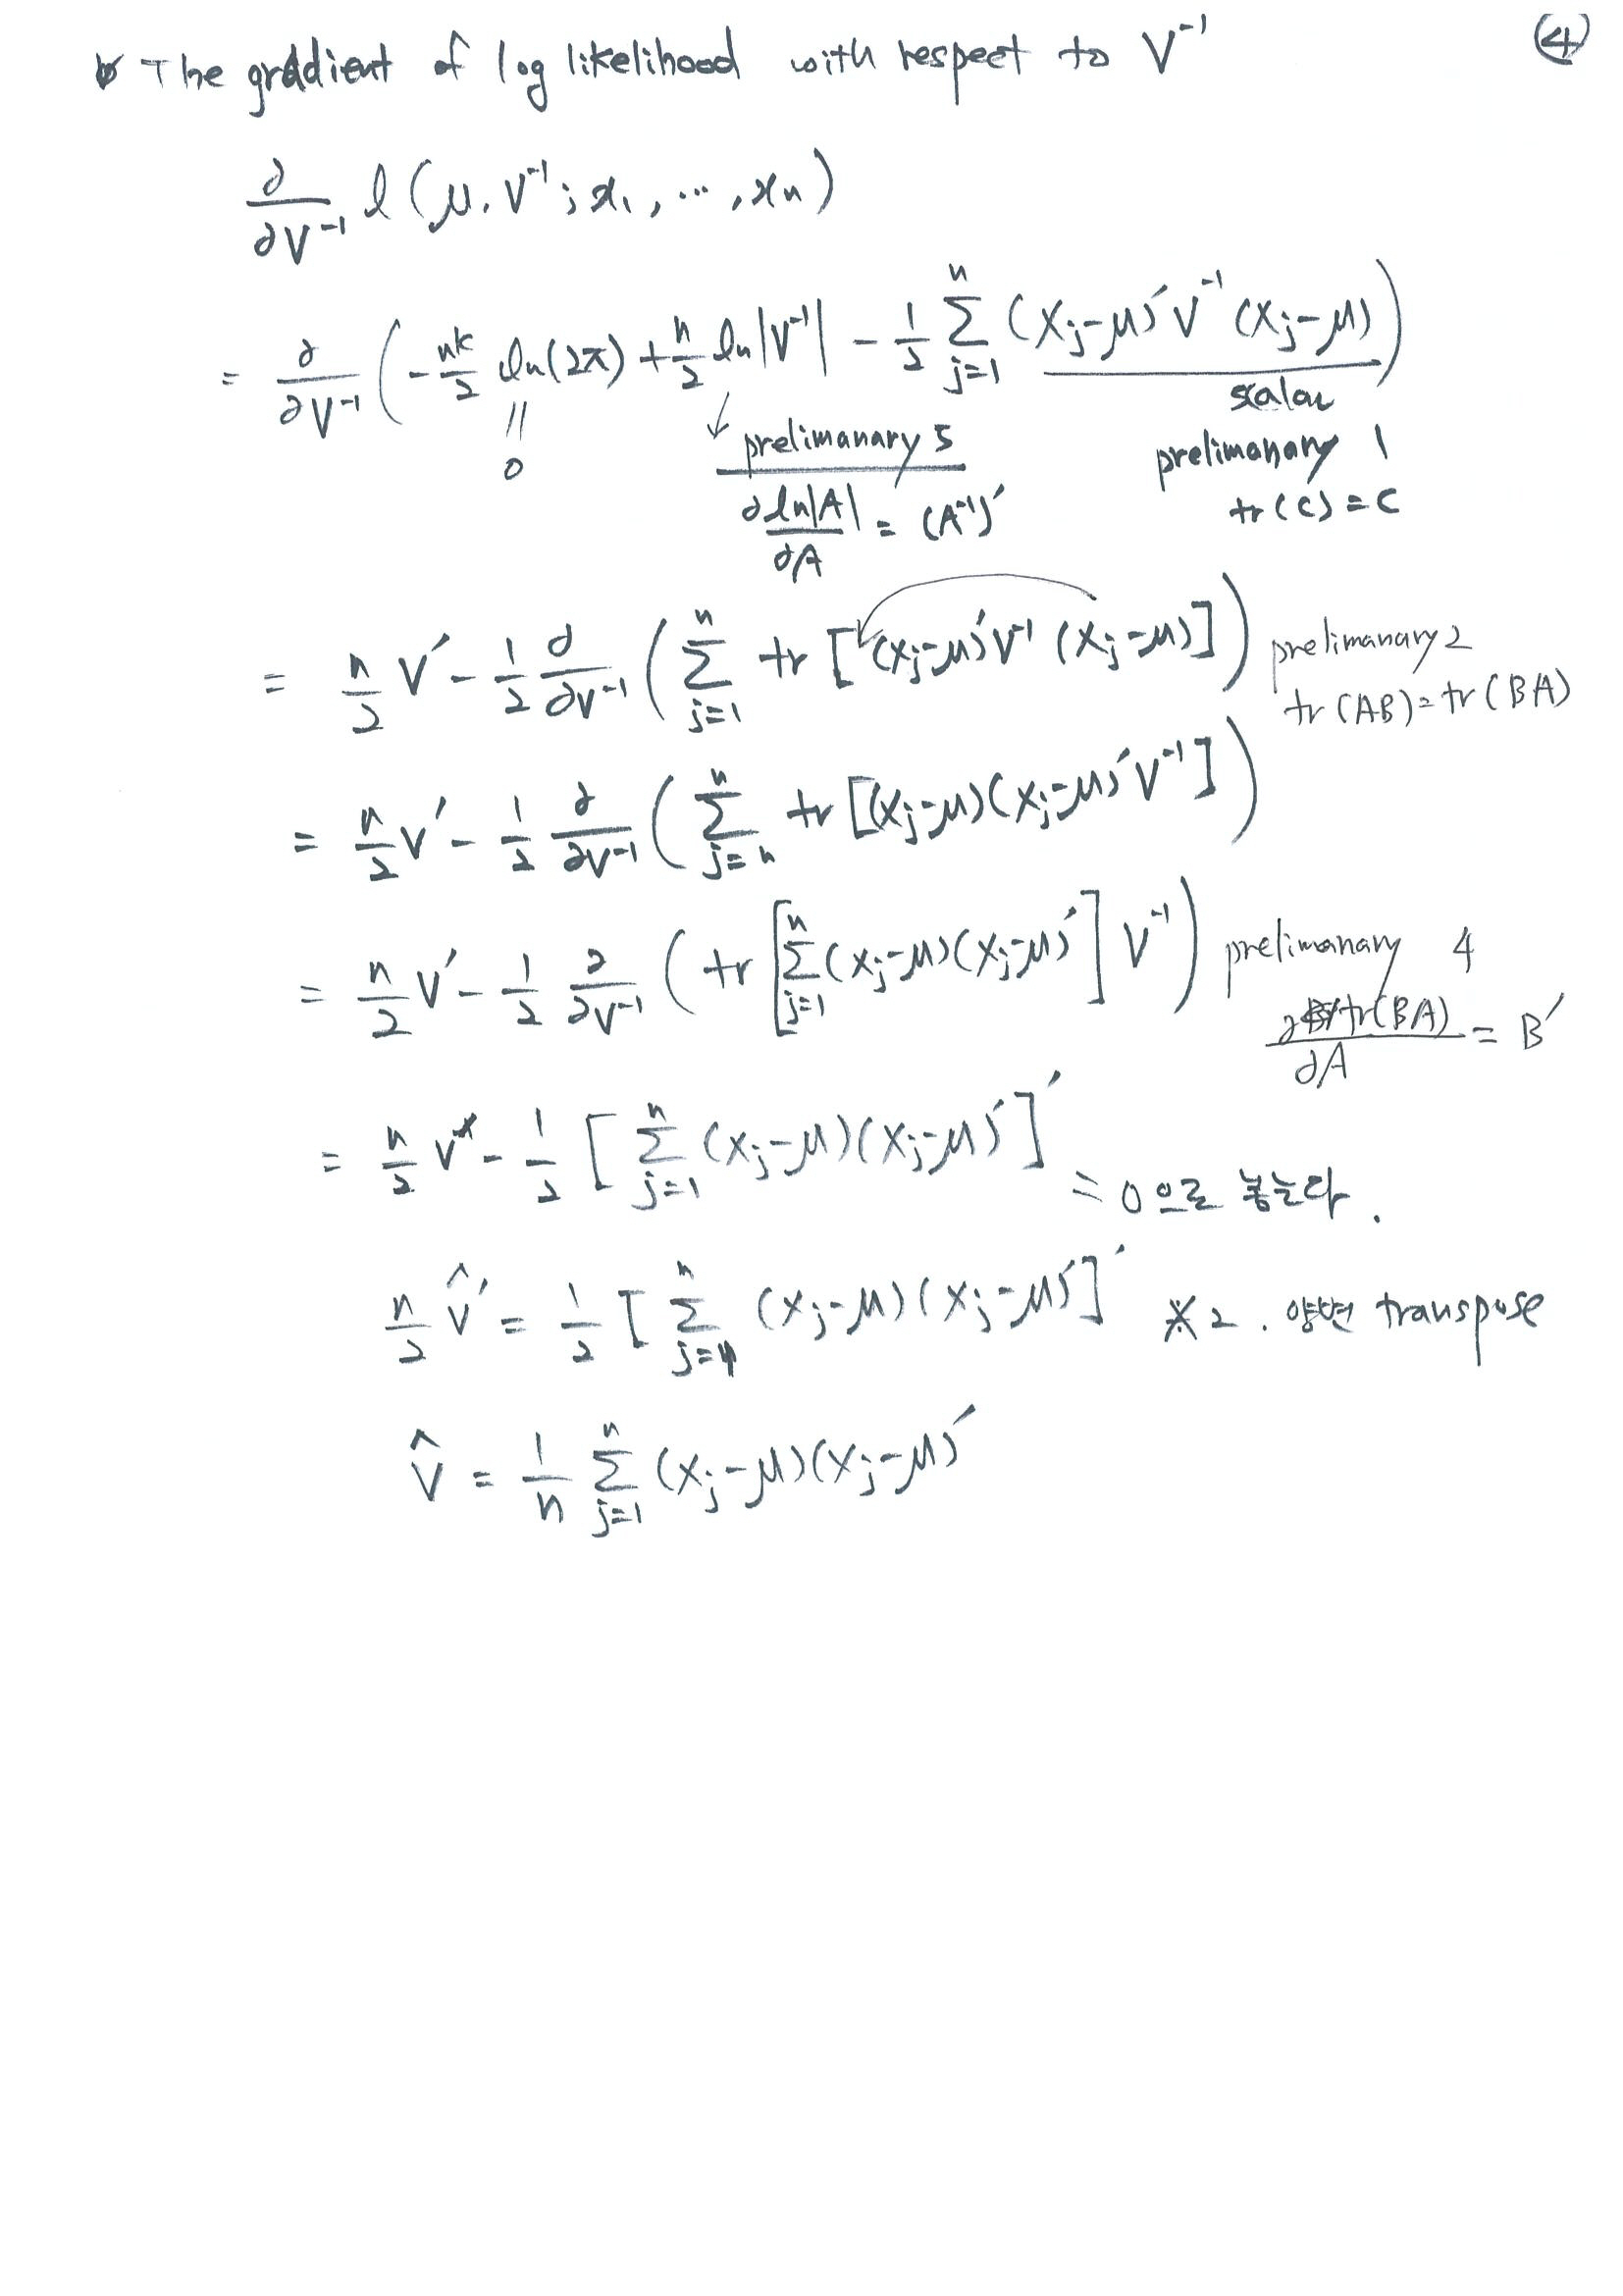 The gradient of log likelihood with respect to V⁻¹ ④
∂/∂V⁻¹ l(μ, V⁻¹; x₁, ⋯, xₙ)
= ∂/∂V⁻¹ ( - nk/2 ln(2π) + n/2 ln|V⁻¹| - 1/2 Σⱼ₌₁ⁿ (xⱼ-μ)′V⁻¹(xⱼ-μ) )
scalar
|| ↓ prelimanary 5 prelimanary 1
0 ∂ln|A|/∂A = (A⁻¹)′ tr(c) = c
= n/2 V′ - 1/2 ∂/∂V⁻¹ ( Σⱼ₌₁ⁿ tr[(xⱼ-μ)′V⁻¹(xⱼ-μ)] ) prelimanary 2
tr(AB) = tr(BA)
= n/2 V′ - 1/2 ∂/∂V⁻¹ ( Σⱼ₌ₙⁿ tr[(xⱼ-μ)(xⱼ-μ)′V⁻¹] )
= n/2 V′ - 1/2 ∂/∂V⁻¹ ( tr[Σⱼ₌₁ⁿ(xⱼ-μ)(xⱼ-μ)′] V⁻¹ ) prelimanary 4
∂tr(BA)/∂A = B′
= n/2 V′ - 1/2 [ Σⱼ₌₁ⁿ (xⱼ-μ)(xⱼ-μ)′ ]′
= 0으로 놓는다.
n/2 V̂′ = 1/2 [ Σⱼ₌₁ⁿ (xⱼ-μ)(xⱼ-μ)′ ]′ ※2. 양변 transpose
V̂ = 1/n Σⱼ₌₁ⁿ (xⱼ-μ)(xⱼ-μ)′